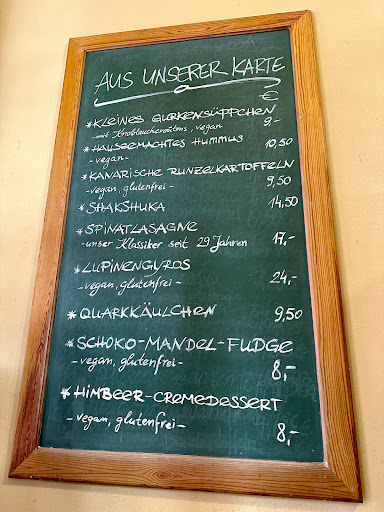 AUS UNSERER KARTE
€
*KLEINES GURKENSÜPPCHEN
-mit Knoblauchcroûtons, vegan 9,-
*HAUSGEMACHTES HUMMUS 10,50
-vegan-
*KANARISCHE RUNZELKARTOFFELN
-vegan, glutenfrei- 9,50
*SHAKSHUKA 14,50
*SPINATLASAGNE
-unser Klassiker seit 29 Jahren 17,-
*LUPINENGYROS 24,-
-vegan, glutenfrei-
*QUARKKÄULCHEN 9,50
*SCHOKO-MANDEL-FUDGE
-vegan, glutenfrei- 8,-
*HIMBEER-CREMEDESSERT
-vegan, glutenfrei- 8,-